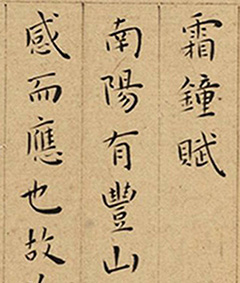 霜鐘賦
南陽有豐山
感而應也故